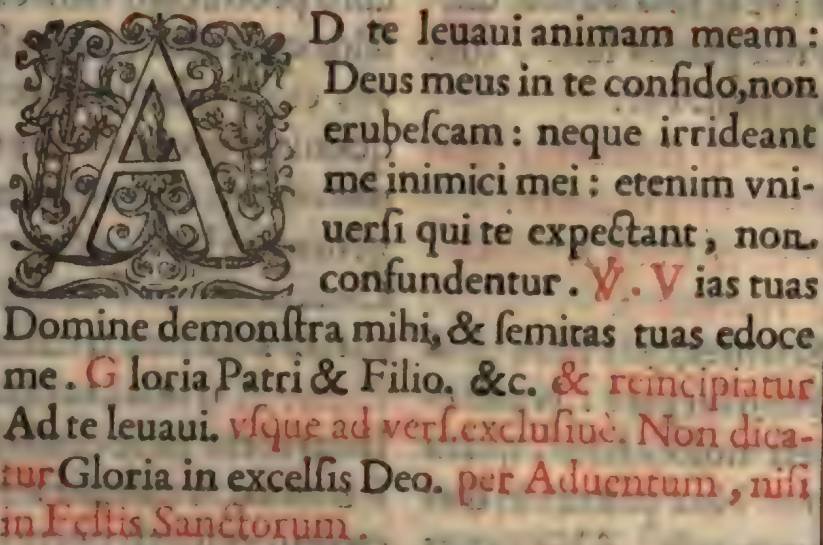 AD te leuaui animam meam :
Deus meus in te confido, non
erubeſcam : neque irrideant
me inimici mei : etenim vni-
uerſi qui te expectant, non
confundentur. ℣. Vias tuas
Domine demonſtra mihi, & ſemitas tuas edoce
me. Gloria Patri & Filio. &c. & reincipiatur
Ad te leuaui. vſque ad verſ. excluſiuè. Non dica-
tur Gloria in excelſis Deo. per Aduentum, niſi
in Feſtis Sanctorum.